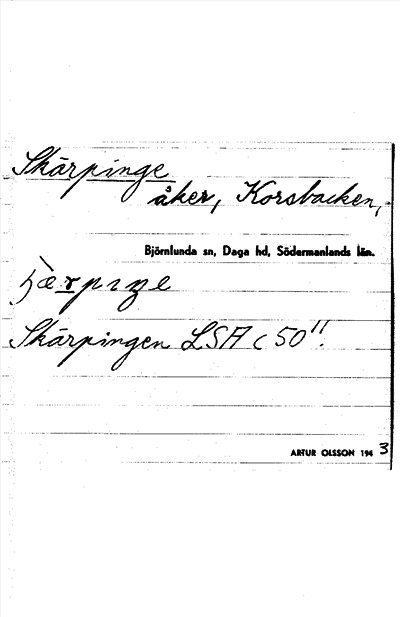 Skärpinge
åker, Korsbacken,
Björnlunda sn, Daga hd, Södermanlands län.
Skärpingen LSA c 50".
ARTUR OLSSON 194 3